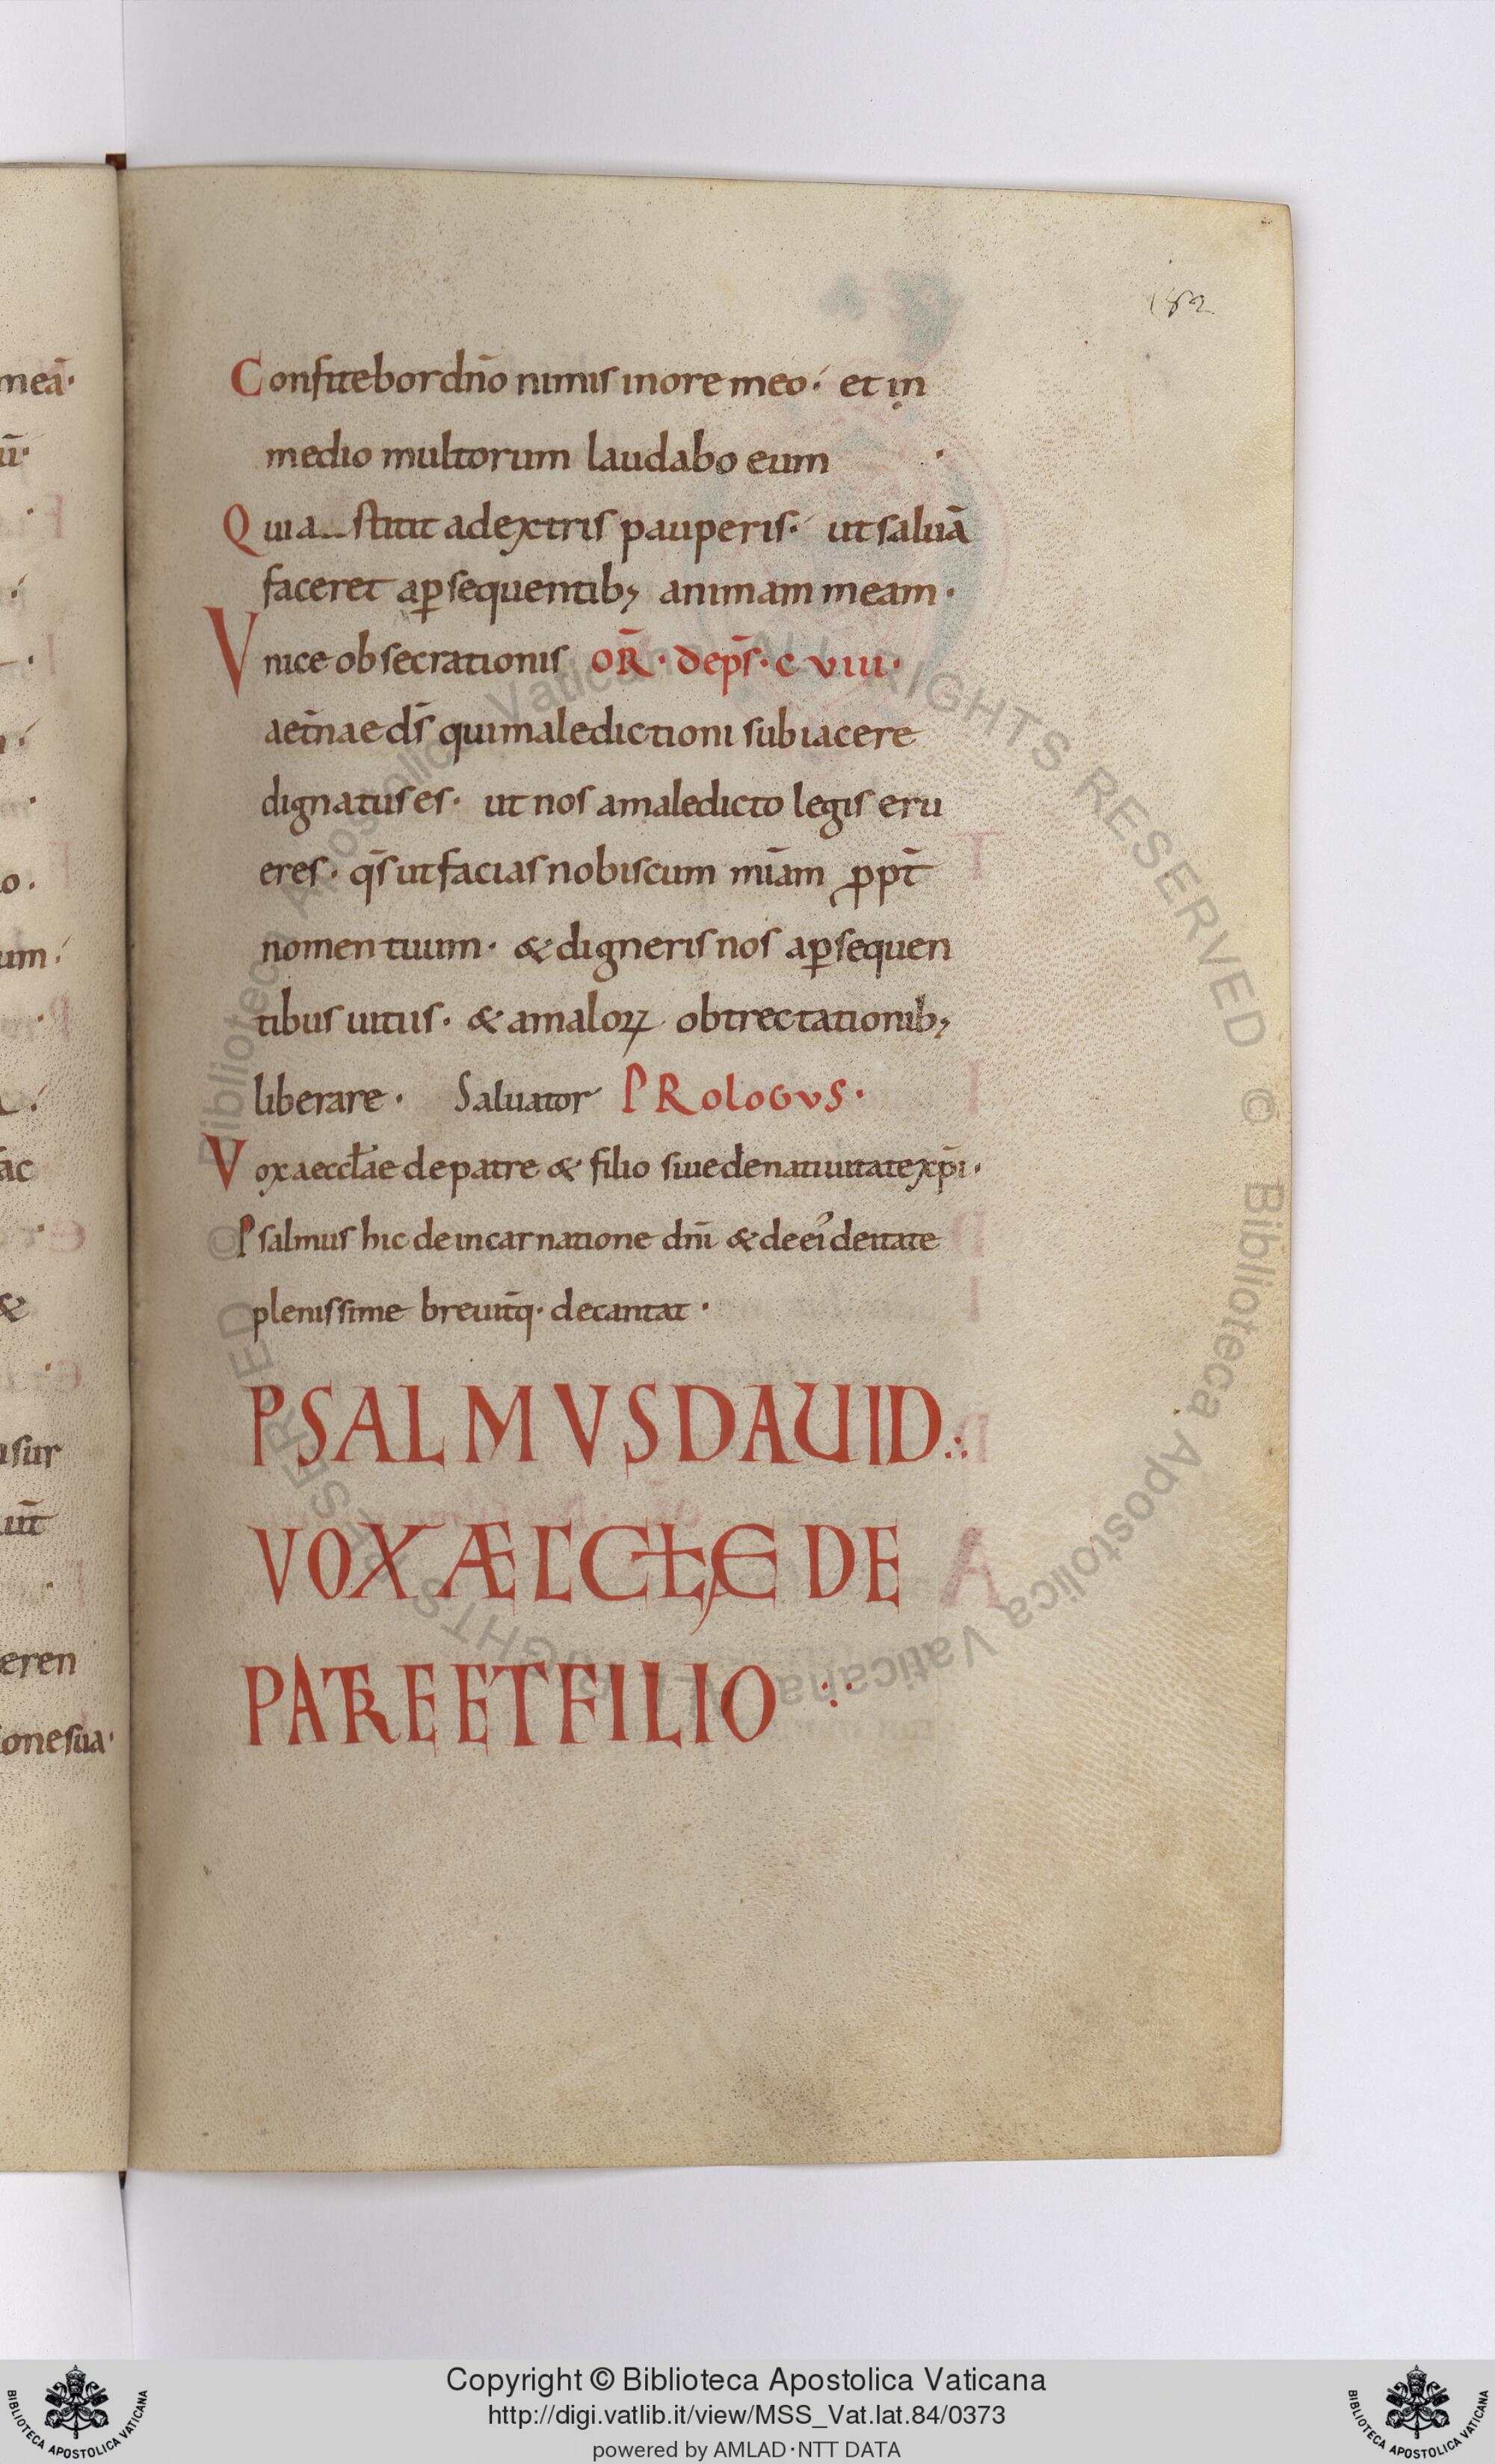 182
Confitebor dn̄o nimis in ore meo· et in
medio multorum laudabo eum
Quia stitit a dextris pauperis· ut saluā
faceret a ꝑsequentib; animam meam·
Vnice obsecrationis OR̄· de ps̄· c viii·
aet̄nae ds̄ qui maledictioni subiacere
dignatus es· ut nos a maledicto legis eru
eres· qs̄ ut facias nobiscum mīam ꝓpt̄
nomen tuum· & digneris nos a ꝑsequen
tibus uitiis· & a maloꝝ obtrectationib;
liberare· Saluator PRologvs·
Vox aeccƚae de patre & filio siue de natiuitate xp̄i·
Psalmus hic de incarnatione dn̄i & de ei' deitate
plenissime breuit̄q· decantat·
PSALMVS DAUID
VOX ÆCCƚE DE
PATRE ET FILIO
meā·
ū·
o·
um
ac
&
sur
ut̄
eren
one sua·
Biblioteca Apostolica Vaticana ALL RIGHTS RESERVED © Biblioteca Apostolica Vaticana ALL RIGHTS RESERVED ©
Copyright © Biblioteca Apostolica Vaticana
http://digi.vatlib.it/view/MSS_Vat.lat.84/0373
powered by AMLAD·NTT DATA
BIBLIOTECA APOSTOLICA VATICANA
BIBLIOTECA APOSTOLICA VATICANA